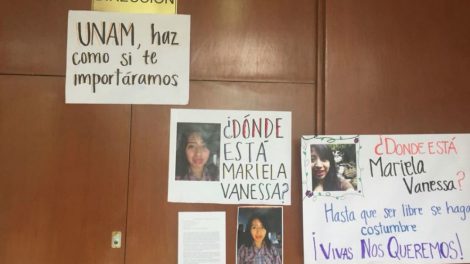 DIRECCIÓN
UNAM, haz
como si te
importáramos
¿DÓNDE
ESTÁ
MARIELA
VANESSA?
¿DONDE ESTÁ
Mariela
Vanessa?
Hasta que ser libre se haga
costumbre
¡VIVAS NOS QUEREMOS!